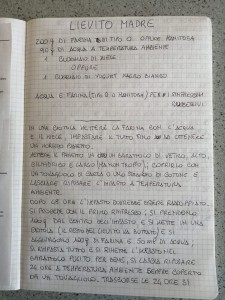 LIEVITO MADRE
200g DI FARINA DI TIPO 0 OPPURE MANITOBA
90g DI ACQUA A TEMPERATURA AMBIENTE
1 CUCCHIAIO DI MIELE
OPPURE
1 CUCCHIAIO DI YOGURT MAGRO BIANCO
ACQUA E FARINA (TIPO 0 O MANITOBA) PER I RINFRESCHI
SUCCESSIVI
IN UNA CIOTOLA METTERE LA FARINA CON L'ACQUA
E IL MIELE, IMPASTARE IL TUTTO FINO AD OTTENERE
UN MORBIDO PANETTO.
METTERE IL PANETTO IN UN BARATTOLO DI VETRO, ALTO,
CILINDRICO E LARGO (MA NON TROPPO), COPRIRLO CON
UN TOVAGLIOLO DI CARTA O UNO STRACCIO DI COTONE E
LASCIARE RIPOSARE L'IMPASTO A TEMPERATURA
AMBIENTE.
DOPO 48 ORE L'IMPASTO DOVREBBE ESSERE RADDOPPIATO,
SI PROCEDE CON IL PRIMO RINFRESCO, SI PRELEVANO
100g DAL CENTRO DELL'IMPASTO E SI METTE IN UNA
CIOTOLA (IL RESTO DEL LIEVITO VA BUTTATO) E SI
AGGIUNGONO 100g DI FARINA E 50 ml DI ACQUA,
SI IMPASTA TUTTO E SI RIMETTE L'IMPASTO NEL
BARATTOLO PULITO PER BENE, SI LASCIA RIPOSARE
24 ORE A TEMPERATURA AMBIENTE SEMPRE COPERTO
DA UN TOVAGLIOLO. TRASCORSE LE 24 ORE SI